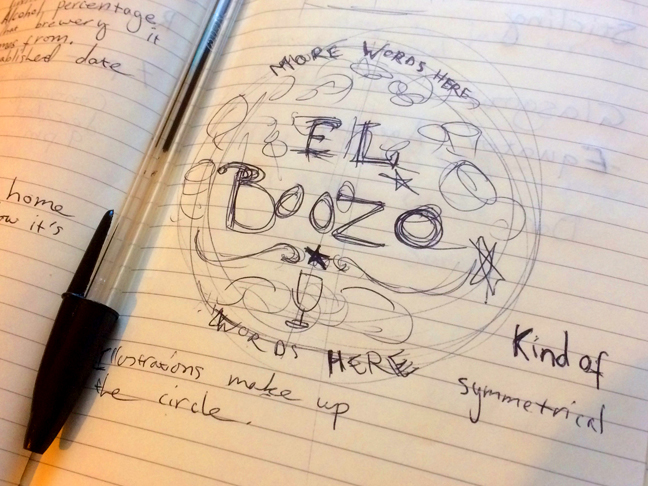 Alcohol percentage
brewery it
from.
date
home
it's
MORE WORDS HERE
EL
BOOZO
WORDS HERE
Illustrations make up
the circle.
Kind of
symmetrical